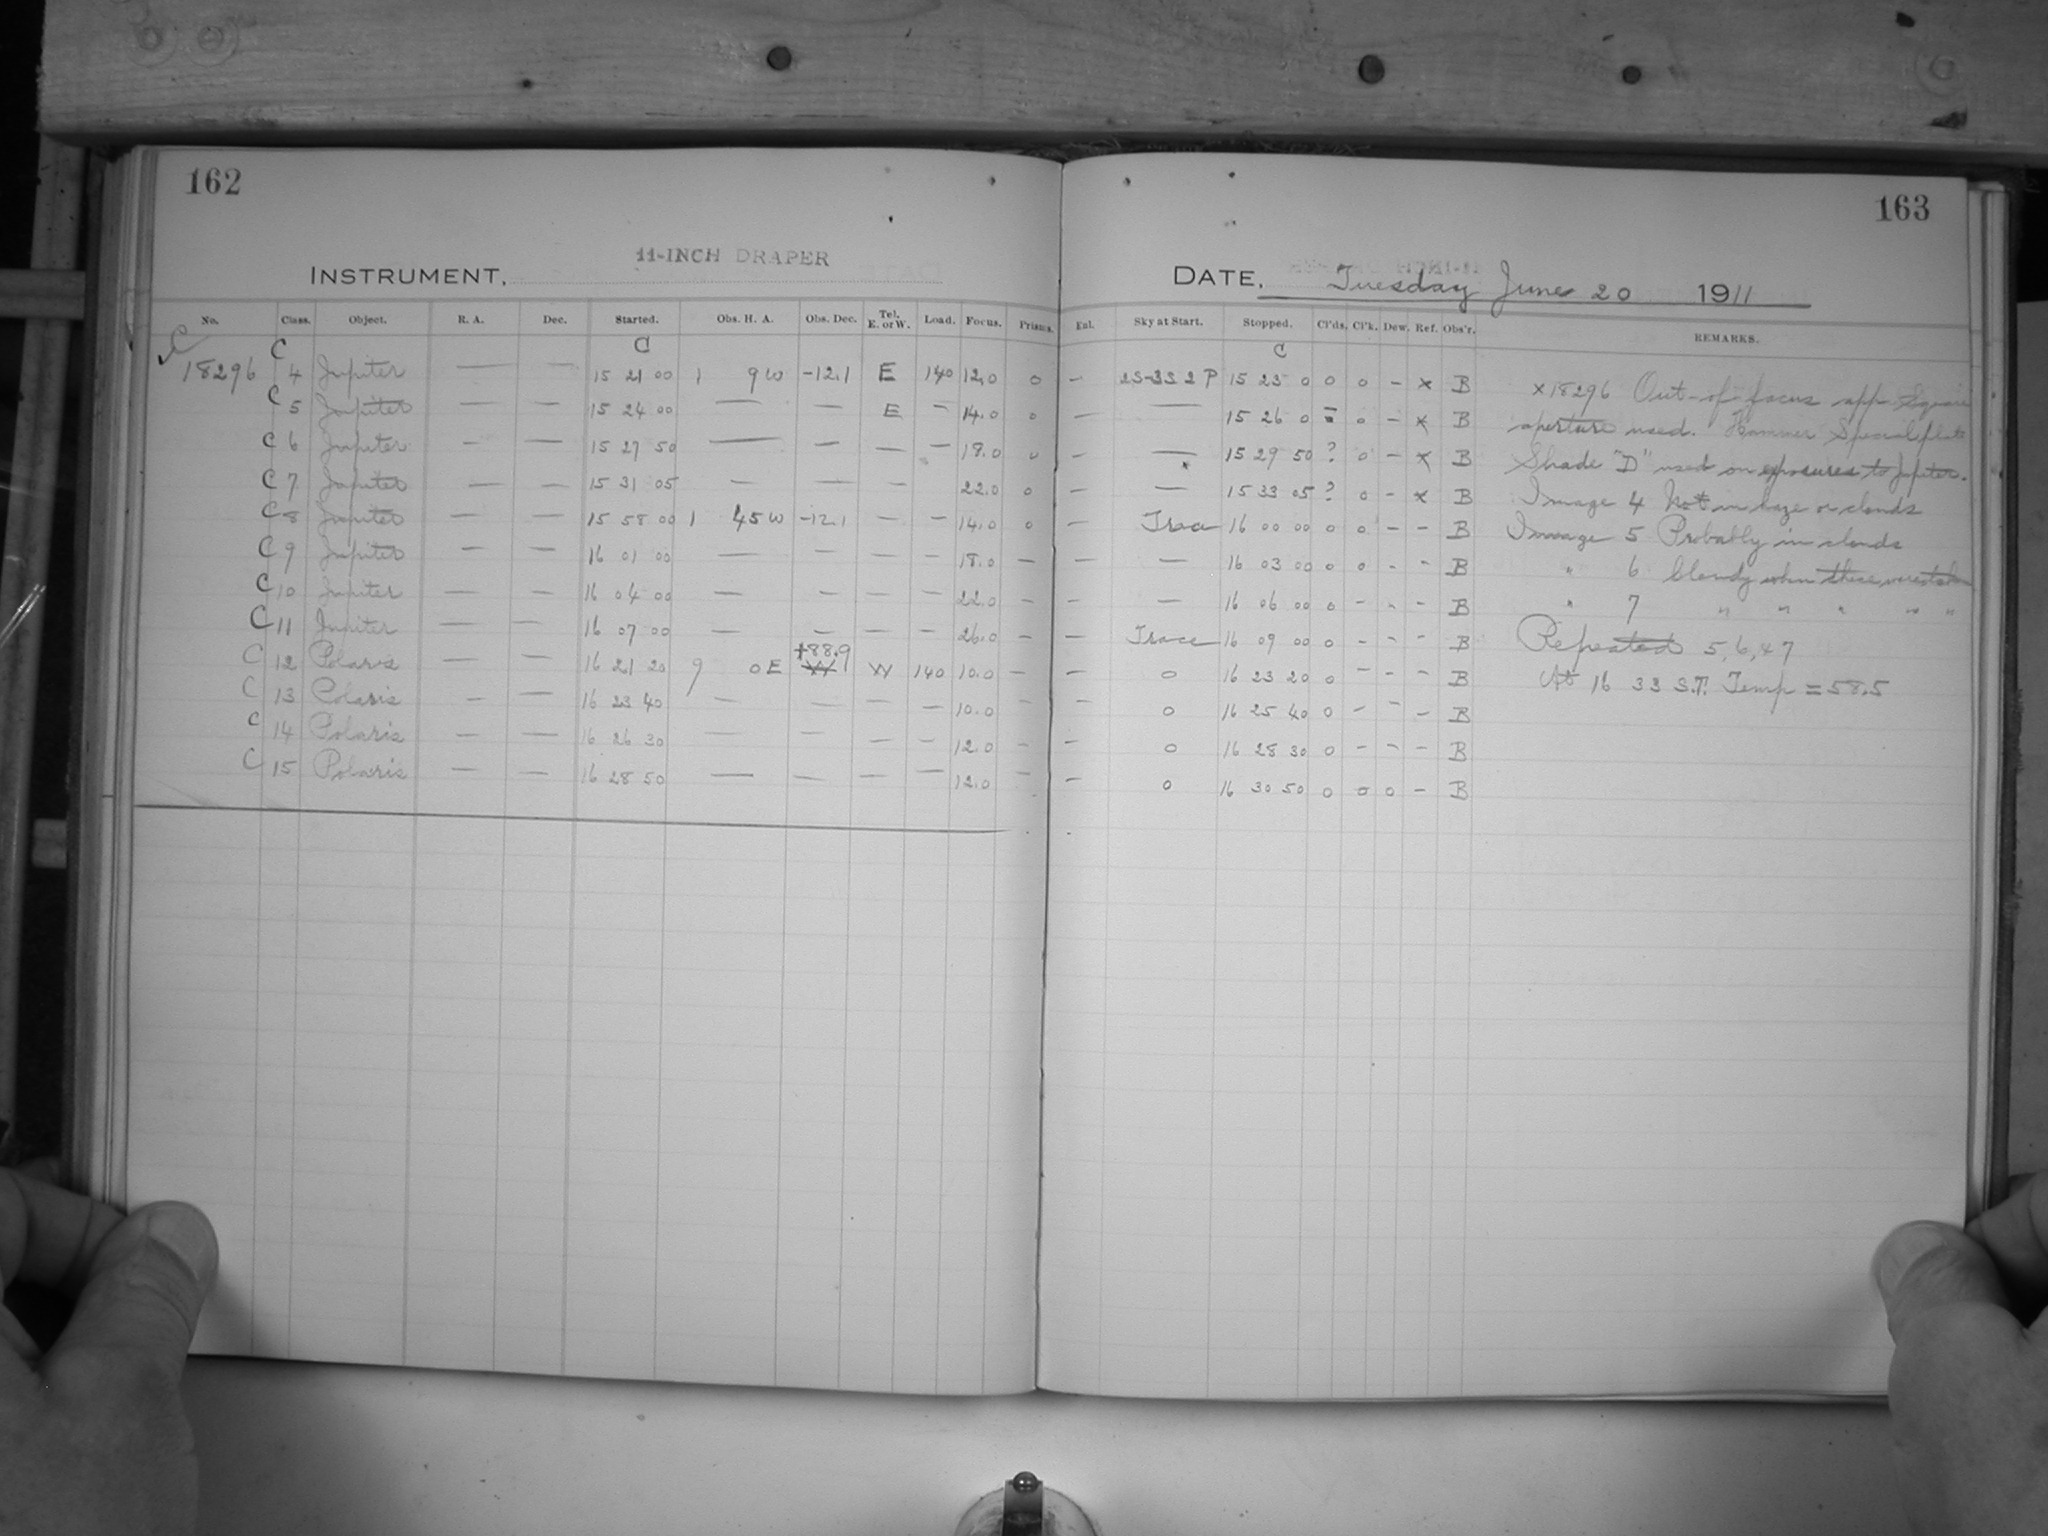 162
11-INCH DRAPER
INSTRUMENT,
No. Class. Object. R. A. Dec. Started. Obs. H. A. Obs. Dec. Tel. E. or W. Load. Focus. Prisms.
C C C
18296 4 Jupiter — — 15 21 00 1 9 W -12.1 E 140 12.0 0
C 5 Jupiter — — 15 24 00 — — E - 14.0 0
C 6 Jupiter - — 15 27 50 — — — — 18.0 0
C 7 Jupiter — — 15 31 05 — — — 22.0 0
C 8 Jupiter — — 15 58 00 1 45 W -12.1 — — 14.0 0
C 9 Jupiter — — 16 01 00 — — — — 18.0 —
C 10 Jupiter — — 16 04 00 — — — — 22.0 —
C 11 Jupiter — — 16 07 00 — — — — 26.0 —
+88.9
C 12 Polaris — — 16 21 20 9 0 E W W 140 10.0 —
C 13 Polaris — — 16 23 40 — — — — 10.0 —
C 14 Polaris — — 16 26 30 — — — — 12.0 —
C 15 Polaris — — 16 28 50 — — — — 12.0 —
163
DATE, Tuesday June 20 1911
Enl. Sky at Start. Stopped. Cl'ds. Cl'k. Dew. Ref. Obs'r. REMARKS.
C
— 2S-3S 2 P 15 23 0 0 0 — x B x 18296 Out-of-focus app. Square
— — 15 26 0 0 — x B aperture used. Hammer Special plate
— — 15 29 50 ? 0 — x B Shade "D" used on exposures to Jupiter.
— — 15 33 05 ? 0 — x B Image 4 Not in haze or clouds
— Trace 16 00 00 0 0 — — B Image 5 Probably in clouds
— — 16 03 00 0 0 - - B " 6 Cloudy when these were taken
— — 16 06 00 0 - - - B " 7 " " " " "
— Trace 16 09 00 0 - - - B Repeated 5, 6, & 7
— 0 16 23 20 0 - - - B At 16 33 S.T. Temp = 58.5
— 0 16 25 40 0 - - - B
— 0 16 28 30 0 - - - B
— 0 16 30 50 0 0 0 - B